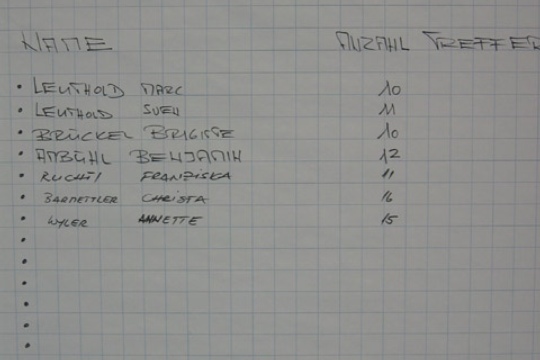 NAME ANZAHL TREFFER
• LEUTHOLD MARC 10
• LEUTHOLD SVEN 11
• BRÜCKEL BRIGITTE 10
• AMBÜHL BENJAMIN 12
• RUCHTI FRANZISKA 11
• BARMETTLER CHRISTA 16
• WYLER ANNETTE 15